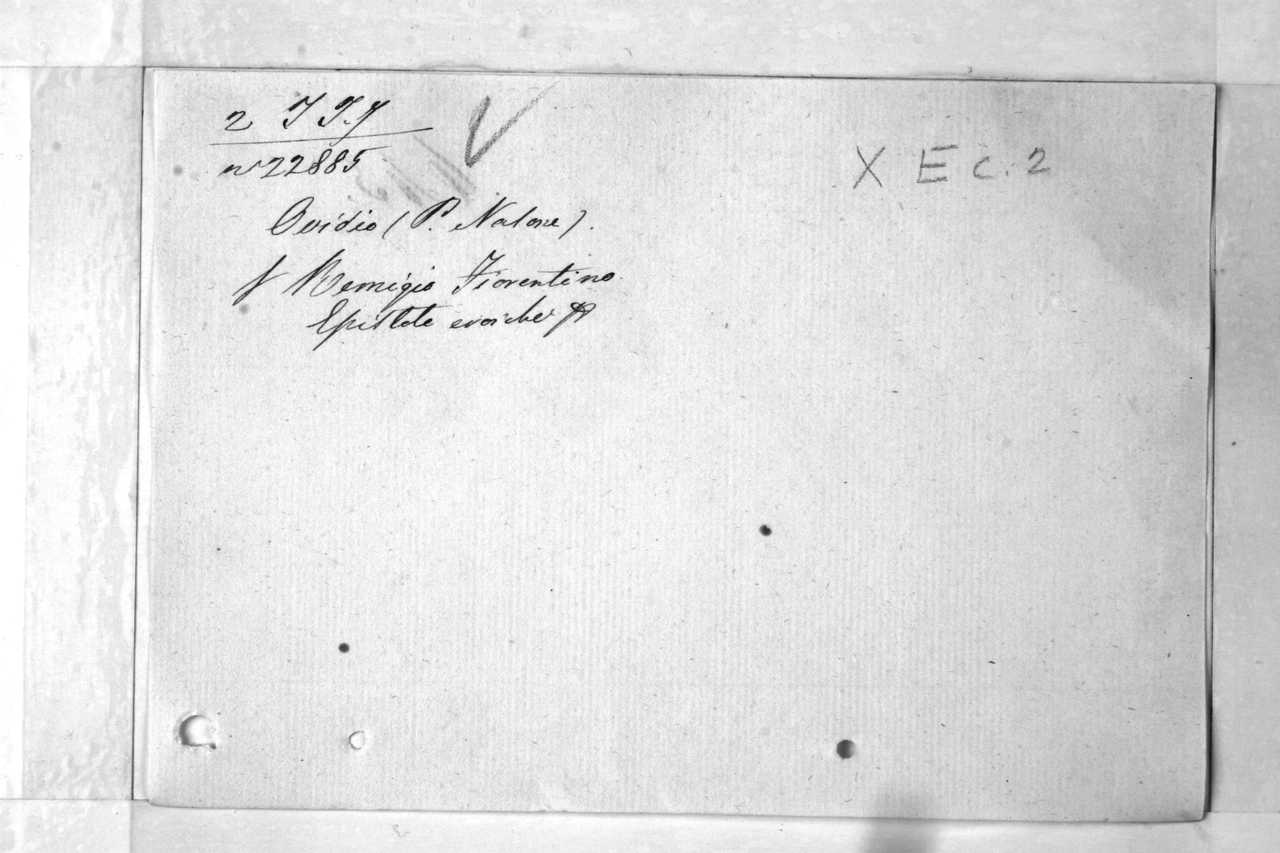 2
X E c. 2
nº 22885
Ovidio (P. Nasone).
Remigio Fiorentino
Epistole eroiche